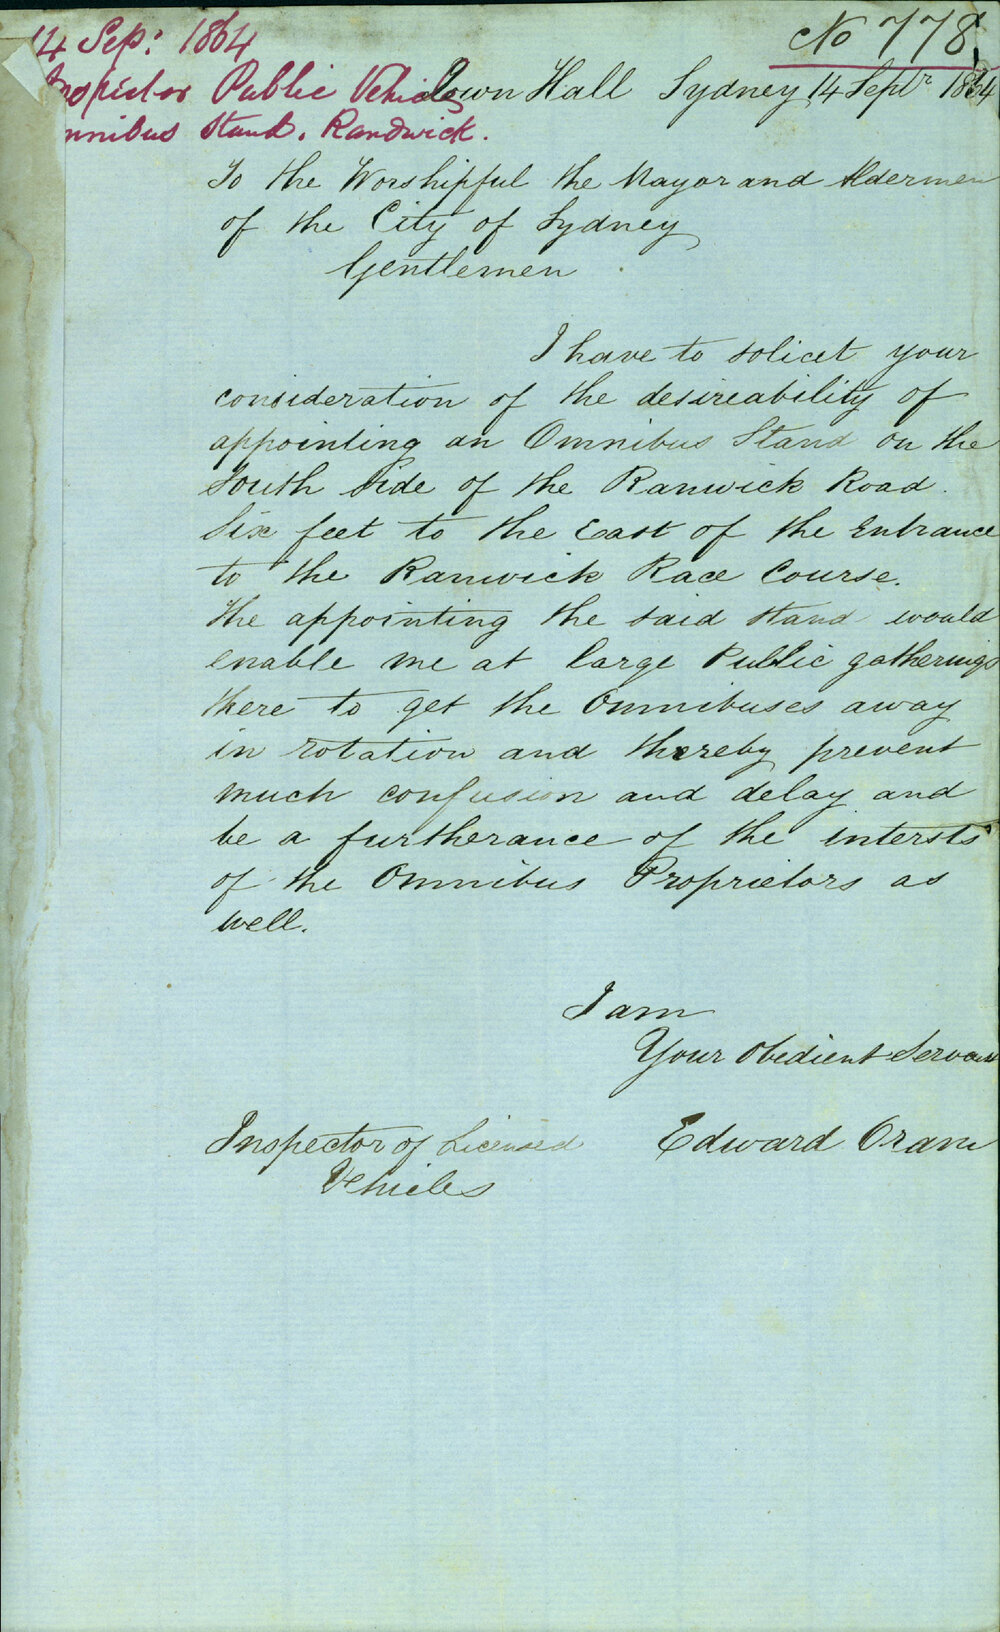 14 Sep: 1864
No 778
Inspector Public Vehicles
Omnibus Stand. Randwick.
Town Hall Sydney 14 Septr 1864
To the Worshipful the Mayor and Aldermen
of the City of Sydney
Gentlemen
I have to solicet your
consideration of the desireability of
appointing an Omnibus Stand on the
South Side of the Ranwick Road.
Six feet to the East of the Entrance
to the Ranwick Race Course.
The appointing the said stand would
enable me at large Public gatherings
there to get the Omnibuses away
in rotation and thereby prevent
much confusion and delay and
be a furtherance of the intersts
of the Omnibus Proprietors as
well.
I am
Your Obedient Servant
Edward Oram
Inspector of Licensed
Vehicles